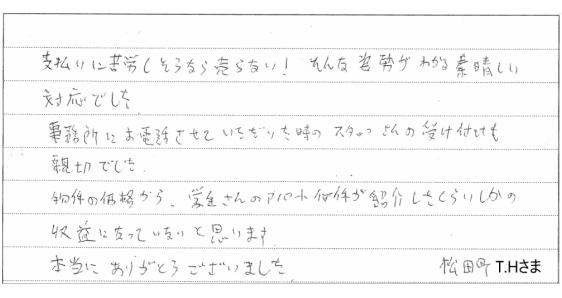 支払いに苦労しそうなら売らない！ そんな姿勢がわかる素晴しい
対応でした
事務所にお電話させていただいた時の スタッフさんの受け付けも
親切でした.
物件の価格から、学生さんのアパート何件か紹介したくらいしかの
収益になっていないと思います
本当に ありがとうございました 松田町 T.Hさま